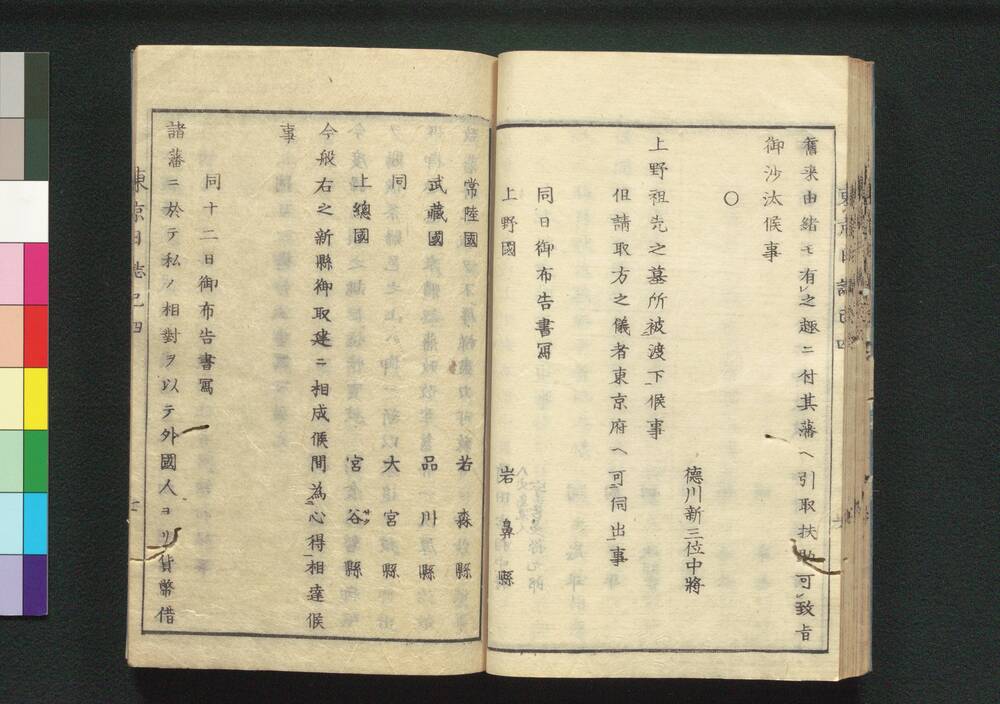 舊来由緒モ有之趣ニ付其藩ヘ引取扶助可致旨
御沙汰候事
○
德川新三位中將
上野祖先之墓所被渡下候事
但請取方之儀者東京府ヘ可伺出事
同日御布告書寫
上野國 岩鼻縣
常陸國 若森縣
武藏國 品川縣
同 大宮縣
上總國 宮谷縣
今般右之新縣御取建ニ相成候間為心得相達候
事
同十二日御布告書寫
諸藩ニ於テ私ノ相對ヲ以テ外國人ヨリ貨幣借
東京日誌己四